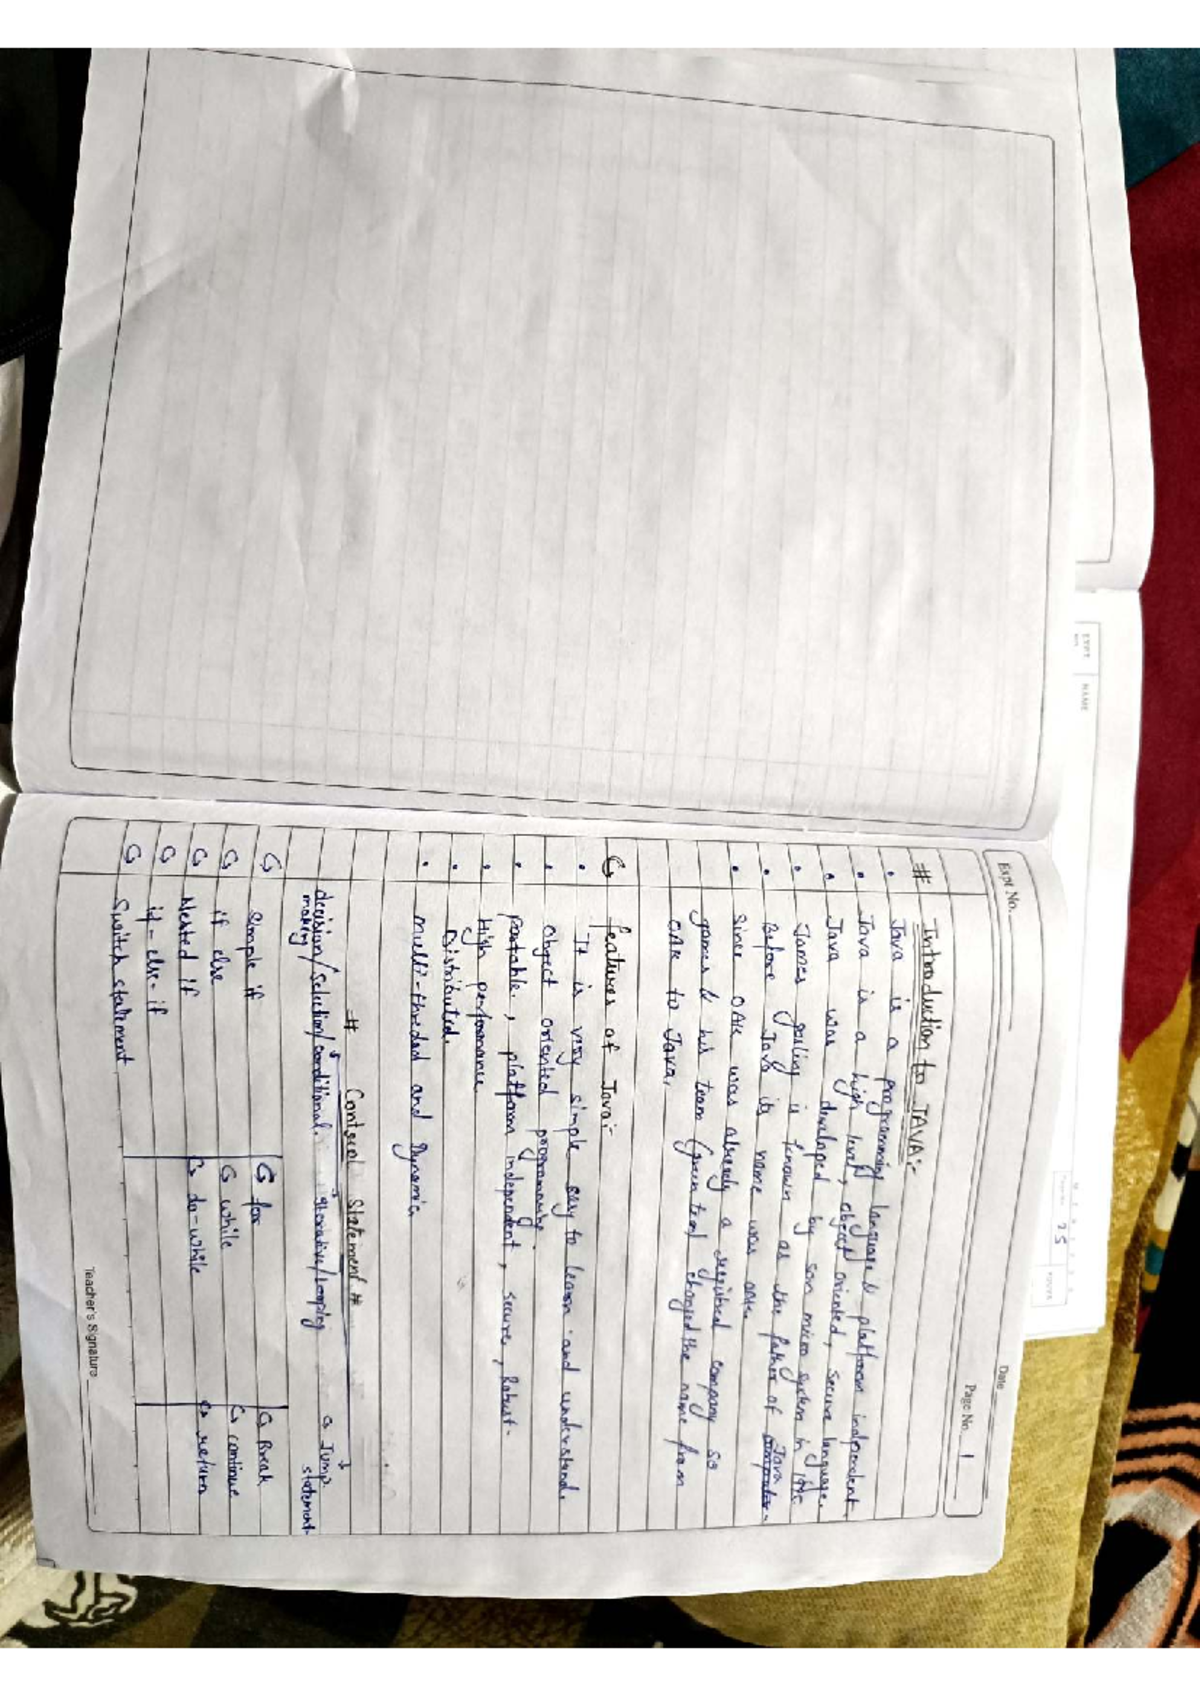 Expt No.
Date
Page No. 1
# Introduction to JAVA:-
• Java is a programming language & platform independent.
• Java is a high level, object oriented, secure language.
• Java was developed by son micro system in
• James gosling is known as the father of Java
• Before Java its name was oak.
• Since OAK was already a company so
games & his team (green team) changed the name from
OAK to Java.
features of Java:-
• It is very simple easy to learn and understand.
• object oriented
• portable, platform independent, secure, Robust.
• High performance
• Distributed.
• multi-threded and Dynamic.
# Control Statement #
decision/Selection/conditional.
making
iterative/looping
Jump
statement
Simple if
for
Break
if else
while
continue
Nested if
do-while
return
if-else-if
Switch statement
Teacher's Signature
EXPT
NAME
25